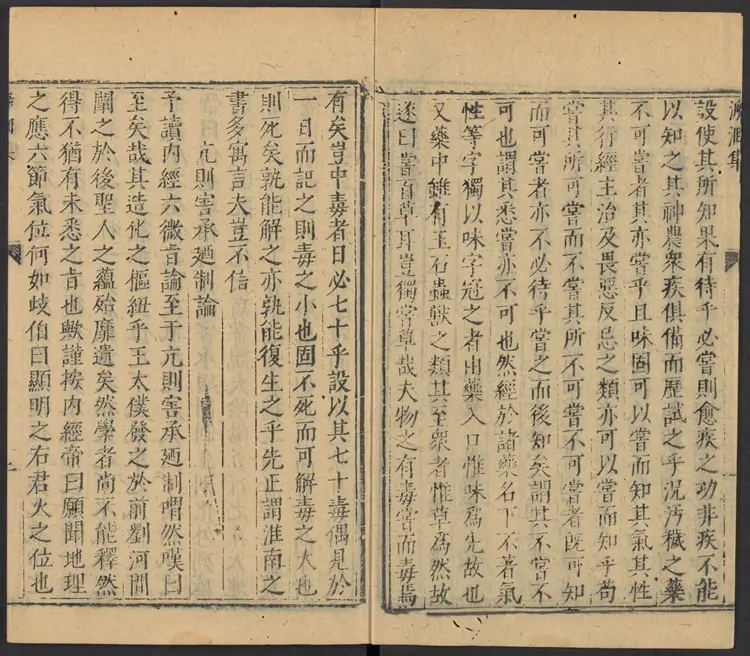 溯洄集
設使其所知果有待乎必嘗則愈疾之功非疾不能
以知之其神農衆疾俱備而歷試之乎況污穢之藥
不可嘗者其亦嘗乎且味固可以嘗而知其氣其性
其行經主治及畏惡反忌之類亦可以嘗而知乎苟
嘗其所可嘗而不嘗其所不可嘗不可嘗者既可知
而可嘗者亦不必待乎嘗之而後知矣謂其不嘗不
可也謂其悉嘗亦不可也然經於諸藥名下不著氣
性等字獨以味字冠之者由藥入口惟味爲先故也
又藥中雖有玉石蟲獸之類其至衆者惟草爲然故
遂曰嘗百草耳豈獨嘗草哉夫物之有毒嘗而毒焉
有矣豈中毒者日必七十乎設以其七十毒偶見於
一日而記之則毒之小也固不死而可解毒之大也
則死矣孰能解之亦孰能復生之乎先正謂淮南之
書多寓言夫豈不信
亢則害承廼制論
予讀內經六微旨論至于亢則害承廼制喟然嘆曰
至矣哉其造化之樞紐乎王太僕發之於前劉河間
闡之於後聖人之蘊殆靡遺矣然學者尚不能釋然
得不猶有未悉之旨也歟謹按內經帝曰願聞地理
之應六節氣位何如歧伯曰顯明之右君火之位也